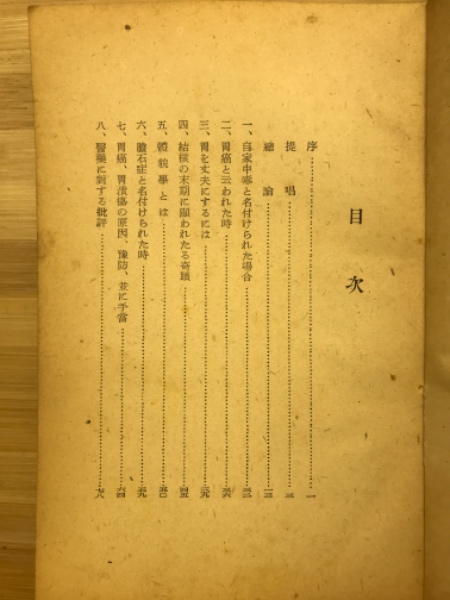 目次
序……一
提唱……三
總論……一三
一、自家中毒と名付けられた場合……三二
二、胃癌と云われた時……三六
三、胃を丈夫にするには……三九
四、結核の末期に顯われたる奇蹟……四五
五、體貌學とは……五〇
六、膽石症と名付けられた時……五九
七、胃癌、胃潰瘍の原因、豫防、並に手當……六四
八、醫藥に對する批評……七八